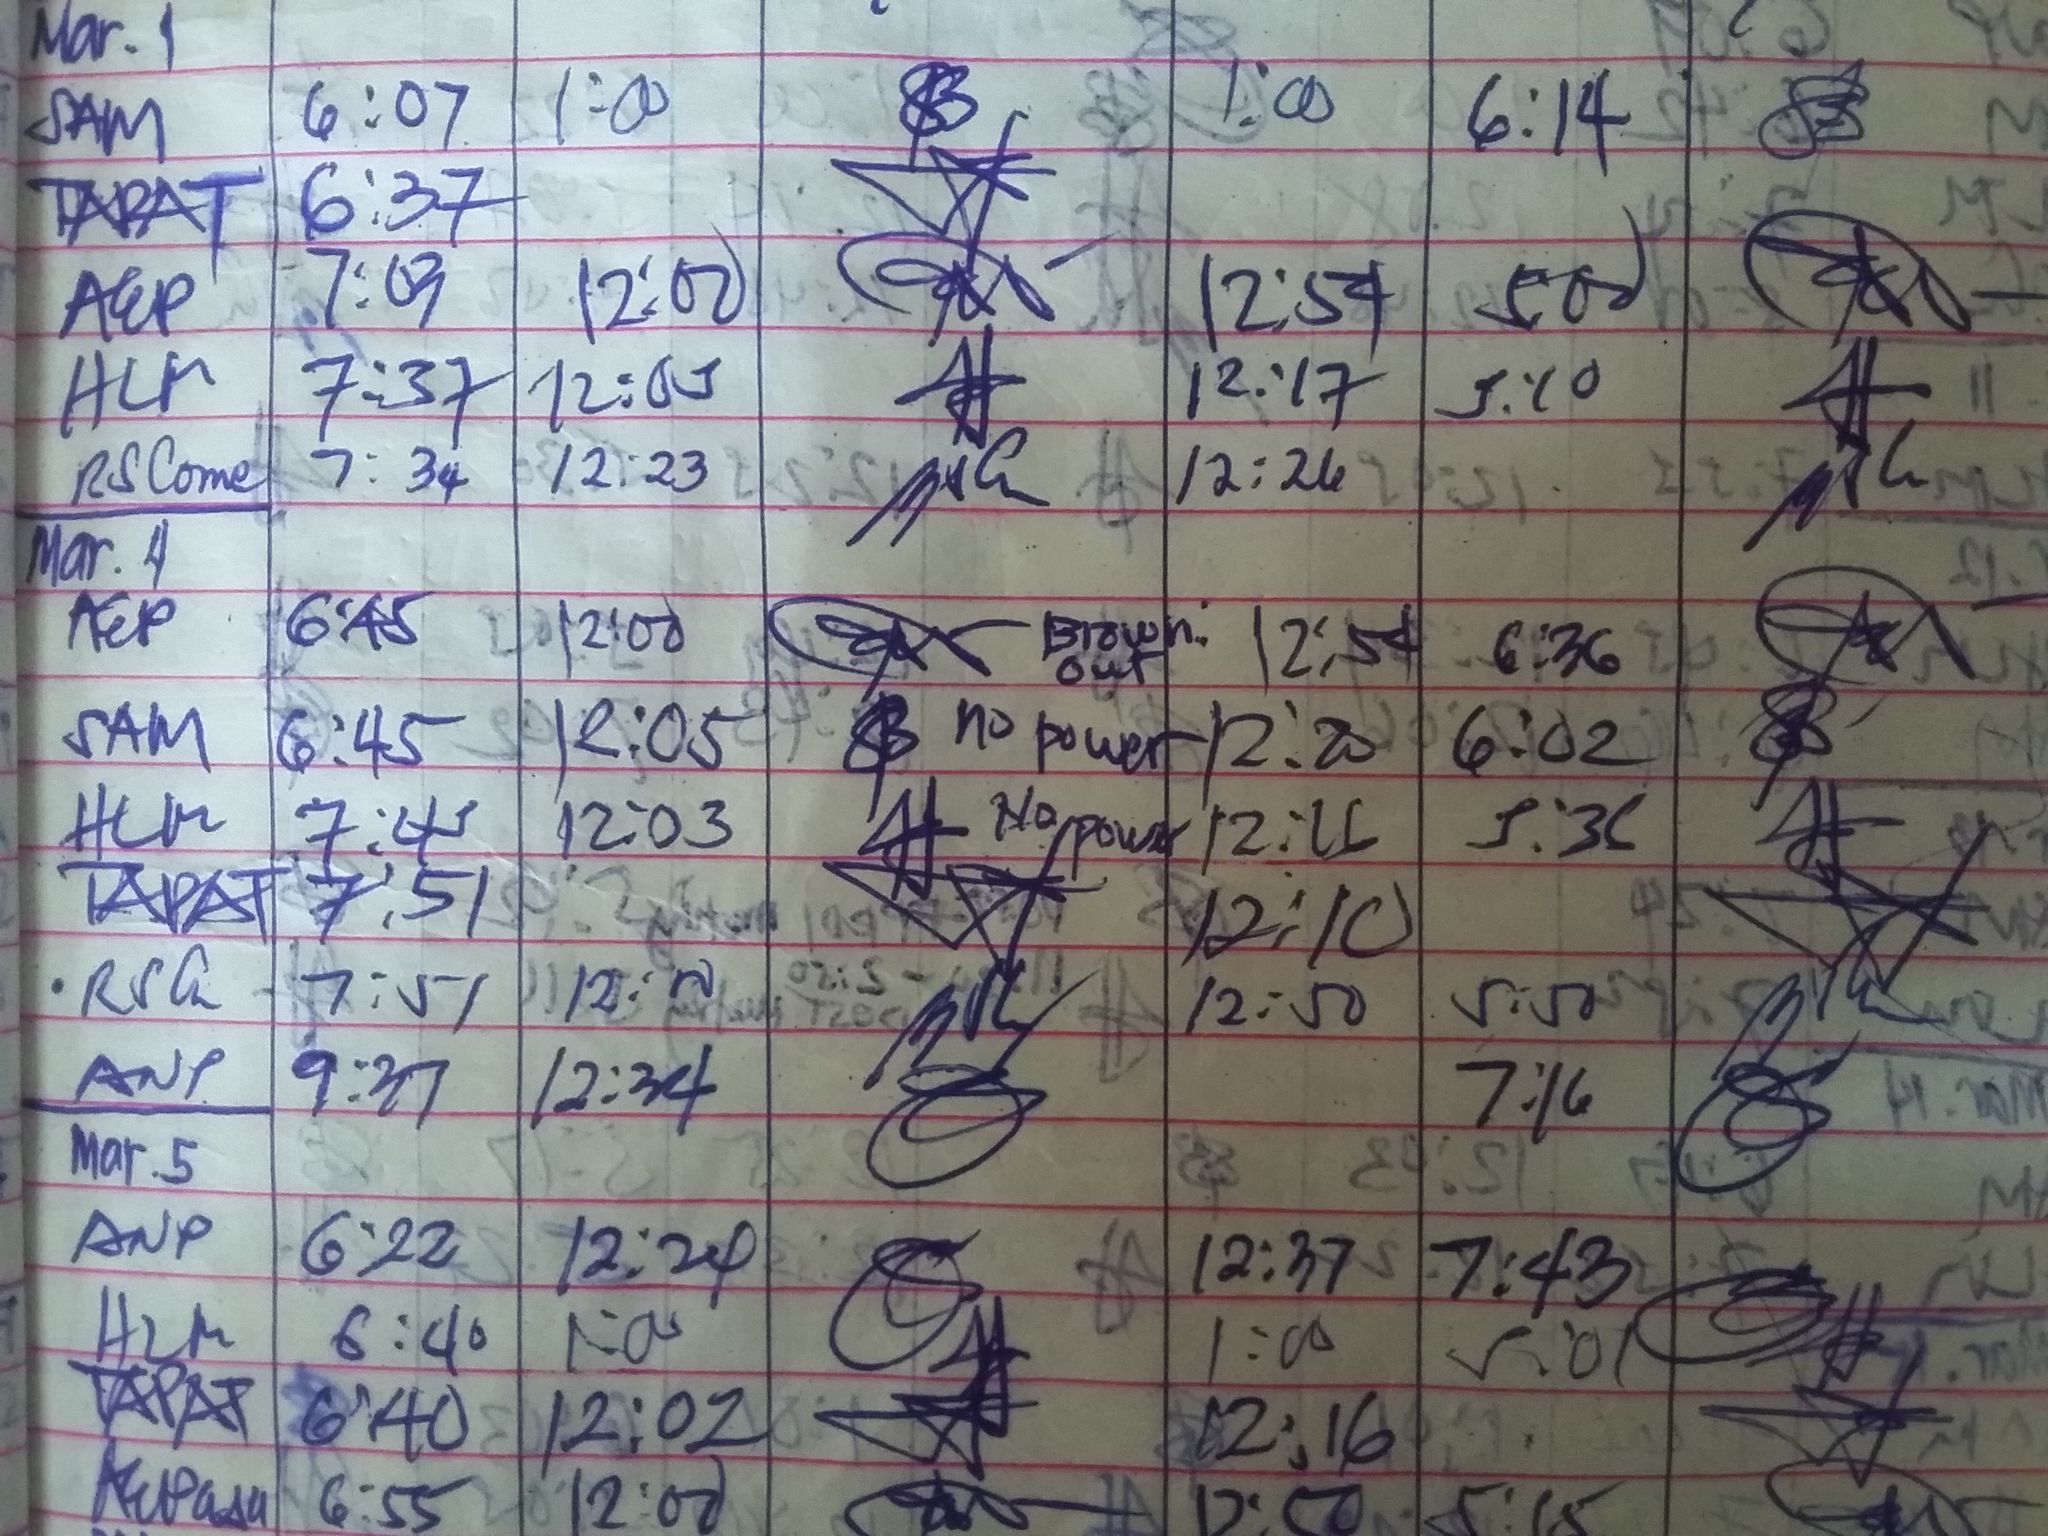 Mar. 1
SAM 6:07 1:00 1:00 6:14
TAPAT 6:37
AEP 7:09 12:00 12:54 5:00
HLM 7:37 12:05 12:17 5:10
RSCome 7:34 12:23 12:26
Mar. 4
AEP 6:45 12:00 Brown out 12:54 6:36
SAM 6:45 12:05 no power 12:20 6:02
HLM 7:45 12:03 No power 12:11 5:36
TAPAT 7:51 12:10
RSC 7:51 12:50 5:50
ANP 9:37 12:34 7:16
Mar. 5
ANP 6:22 12:24 12:37 7:43
HLM 6:40 1:00 1:00 5:01
TAPAT 6:40 12:02 12:16
6:55 12:00 12:50 5:15